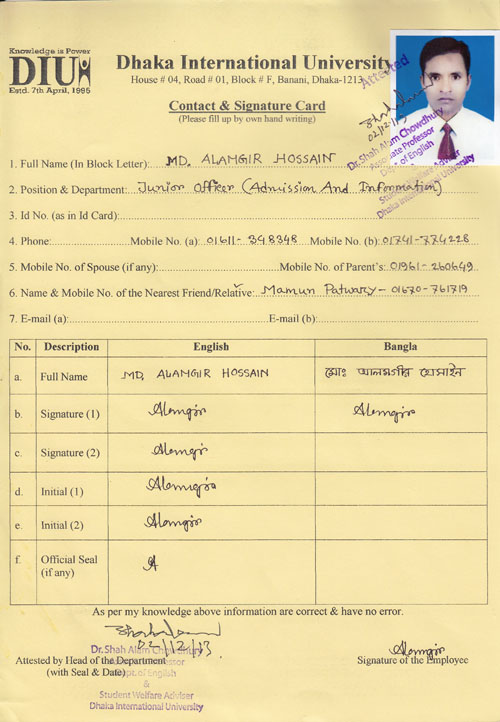 Knowledge is Power
DIU
Estd. 7th April, 1995
Dhaka International University
House # 04, Road # 01, Block # F, Banani, Dhaka-1213
Contact & Signature Card
(Please fill up by own hand writing)
Attested
02/12/13
Dr. Shah Alam Chowdhury
Associate Professor
Dept. of English
&
Student Welfare Adviser
Dhaka International University
1. Full Name (In Block Letter): MD. ALAMGIR HOSSAIN
2. Position & Department: Junior Officer (Admission And Information)
3. Id No. (as in Id Card)
4. Phone: Mobile No. (a): 01611-348348 Mobile No. (b): 01741-774228
5. Mobile No. of Spouse (if any): Mobile No. of Parent's: 01961-260649
6. Name & Mobile No. of the Nearest Friend/Relative: Mamun Patwary - 01670-761719
7. E-mail (a): E-mail (b):
No. Description English Bangla
a. Full Name MD. ALAMGIR HOSSAIN মোঃ আলমগীর হোসাইন
b. Signature (1) Alamgir Alamgir
c. Signature (2) Alamgir
d. Initial (1) Alamgir
e. Initial (2) Alamgir
f. Official Seal (if any) A
As per my knowledge above information are correct & have no error.
02/12/13
Dr. Shah Alam Chowdhury
Attested by Head of the Department
Associate Professor
(with Seal & Date)
Dept. of English
&
Student Welfare Adviser
Dhaka International University
Alamgir
Signature of the Employee